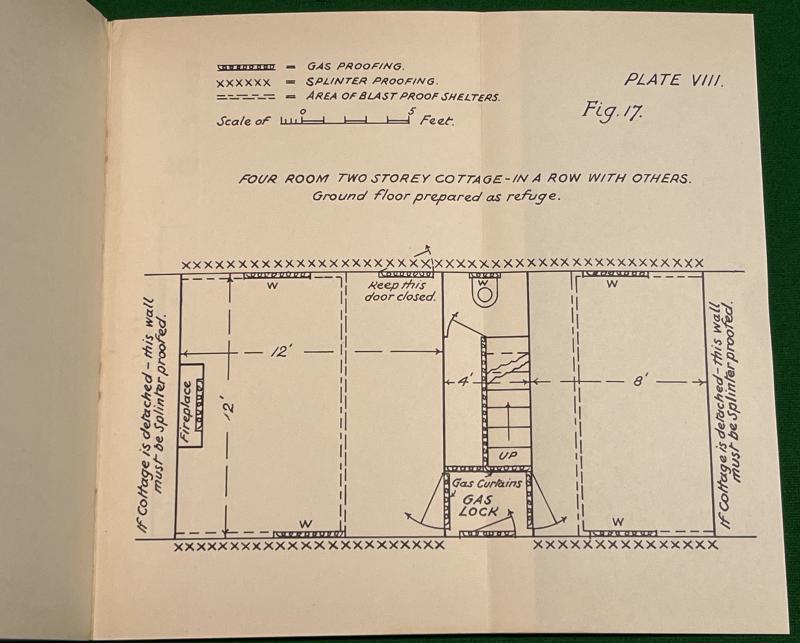 = GAS PROOFING.
XXXXXX = SPLINTER PROOFING.
= AREA OF BLAST PROOF SHELTERS.
Scale of 0 5 Feet.
PLATE VIII.
Fig. 17.
FOUR ROOM TWO STOREY COTTAGE-IN A ROW WITH OTHERS.
Ground floor prepared as refuge.
W
Keep this
door closed.
W
W
If Cottage is detached-this wall
must be Splinter proofed.
12'
12'
Fireplace
4'
8'
UP
Gas Curtains
GAS
LOCK
W
W
If Cottage is detached-this wall
must be Splinter proofed.